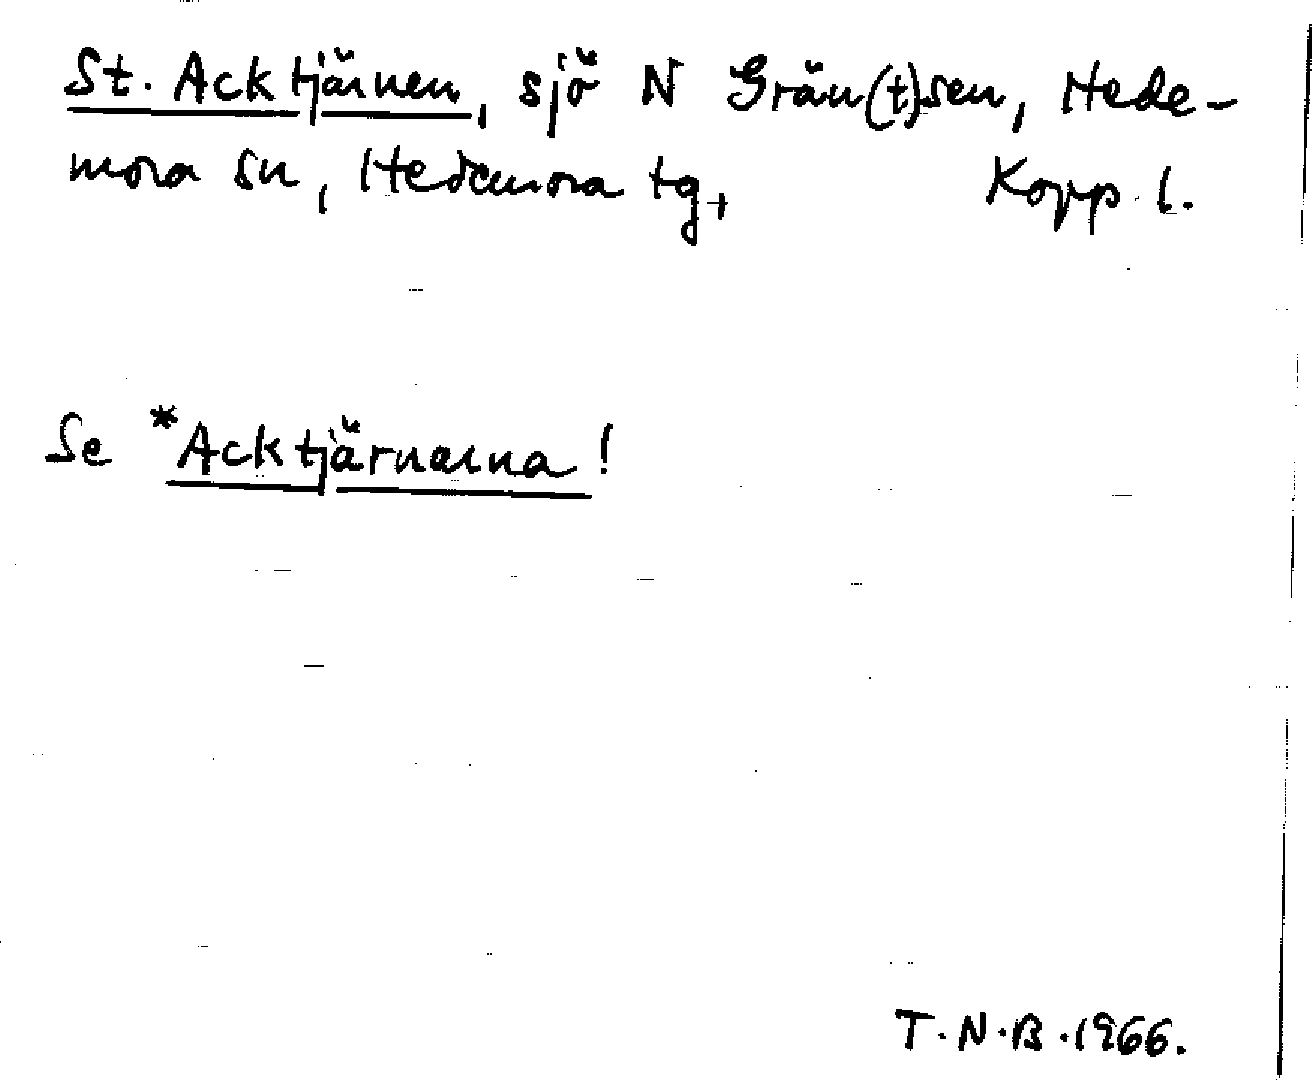 St. Acktjärnen, sjö N Grän(t)sen, Hede-
mora sn, Hedemora tg, Kopp. l.
Se *Acktjärnarna!
T.N.B. 1966.